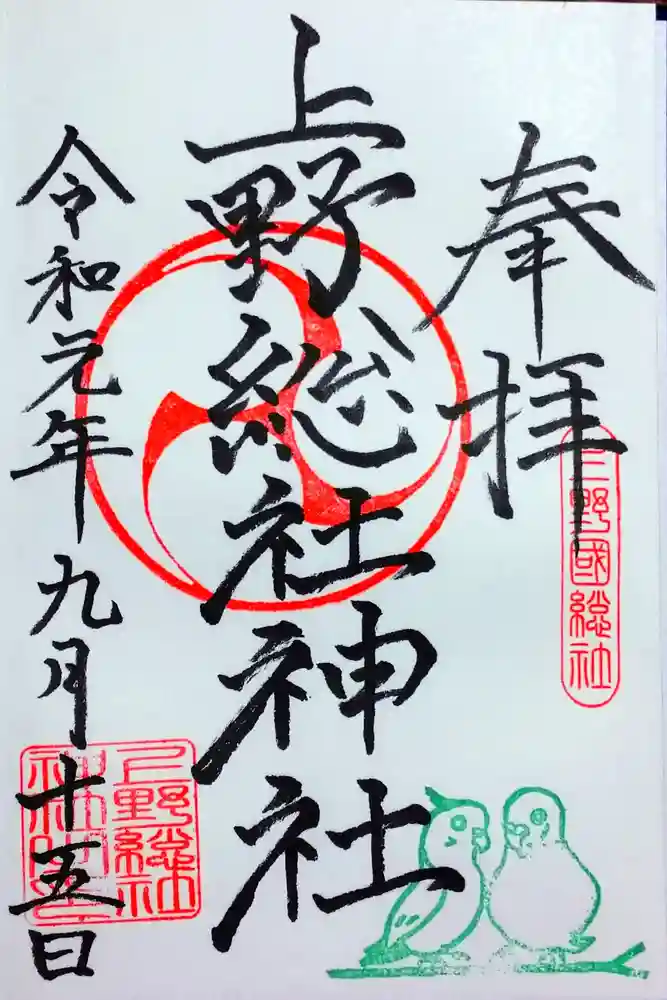 奉拝
上野國総社
上野総社神社
令和元年九月十五日
上野総社